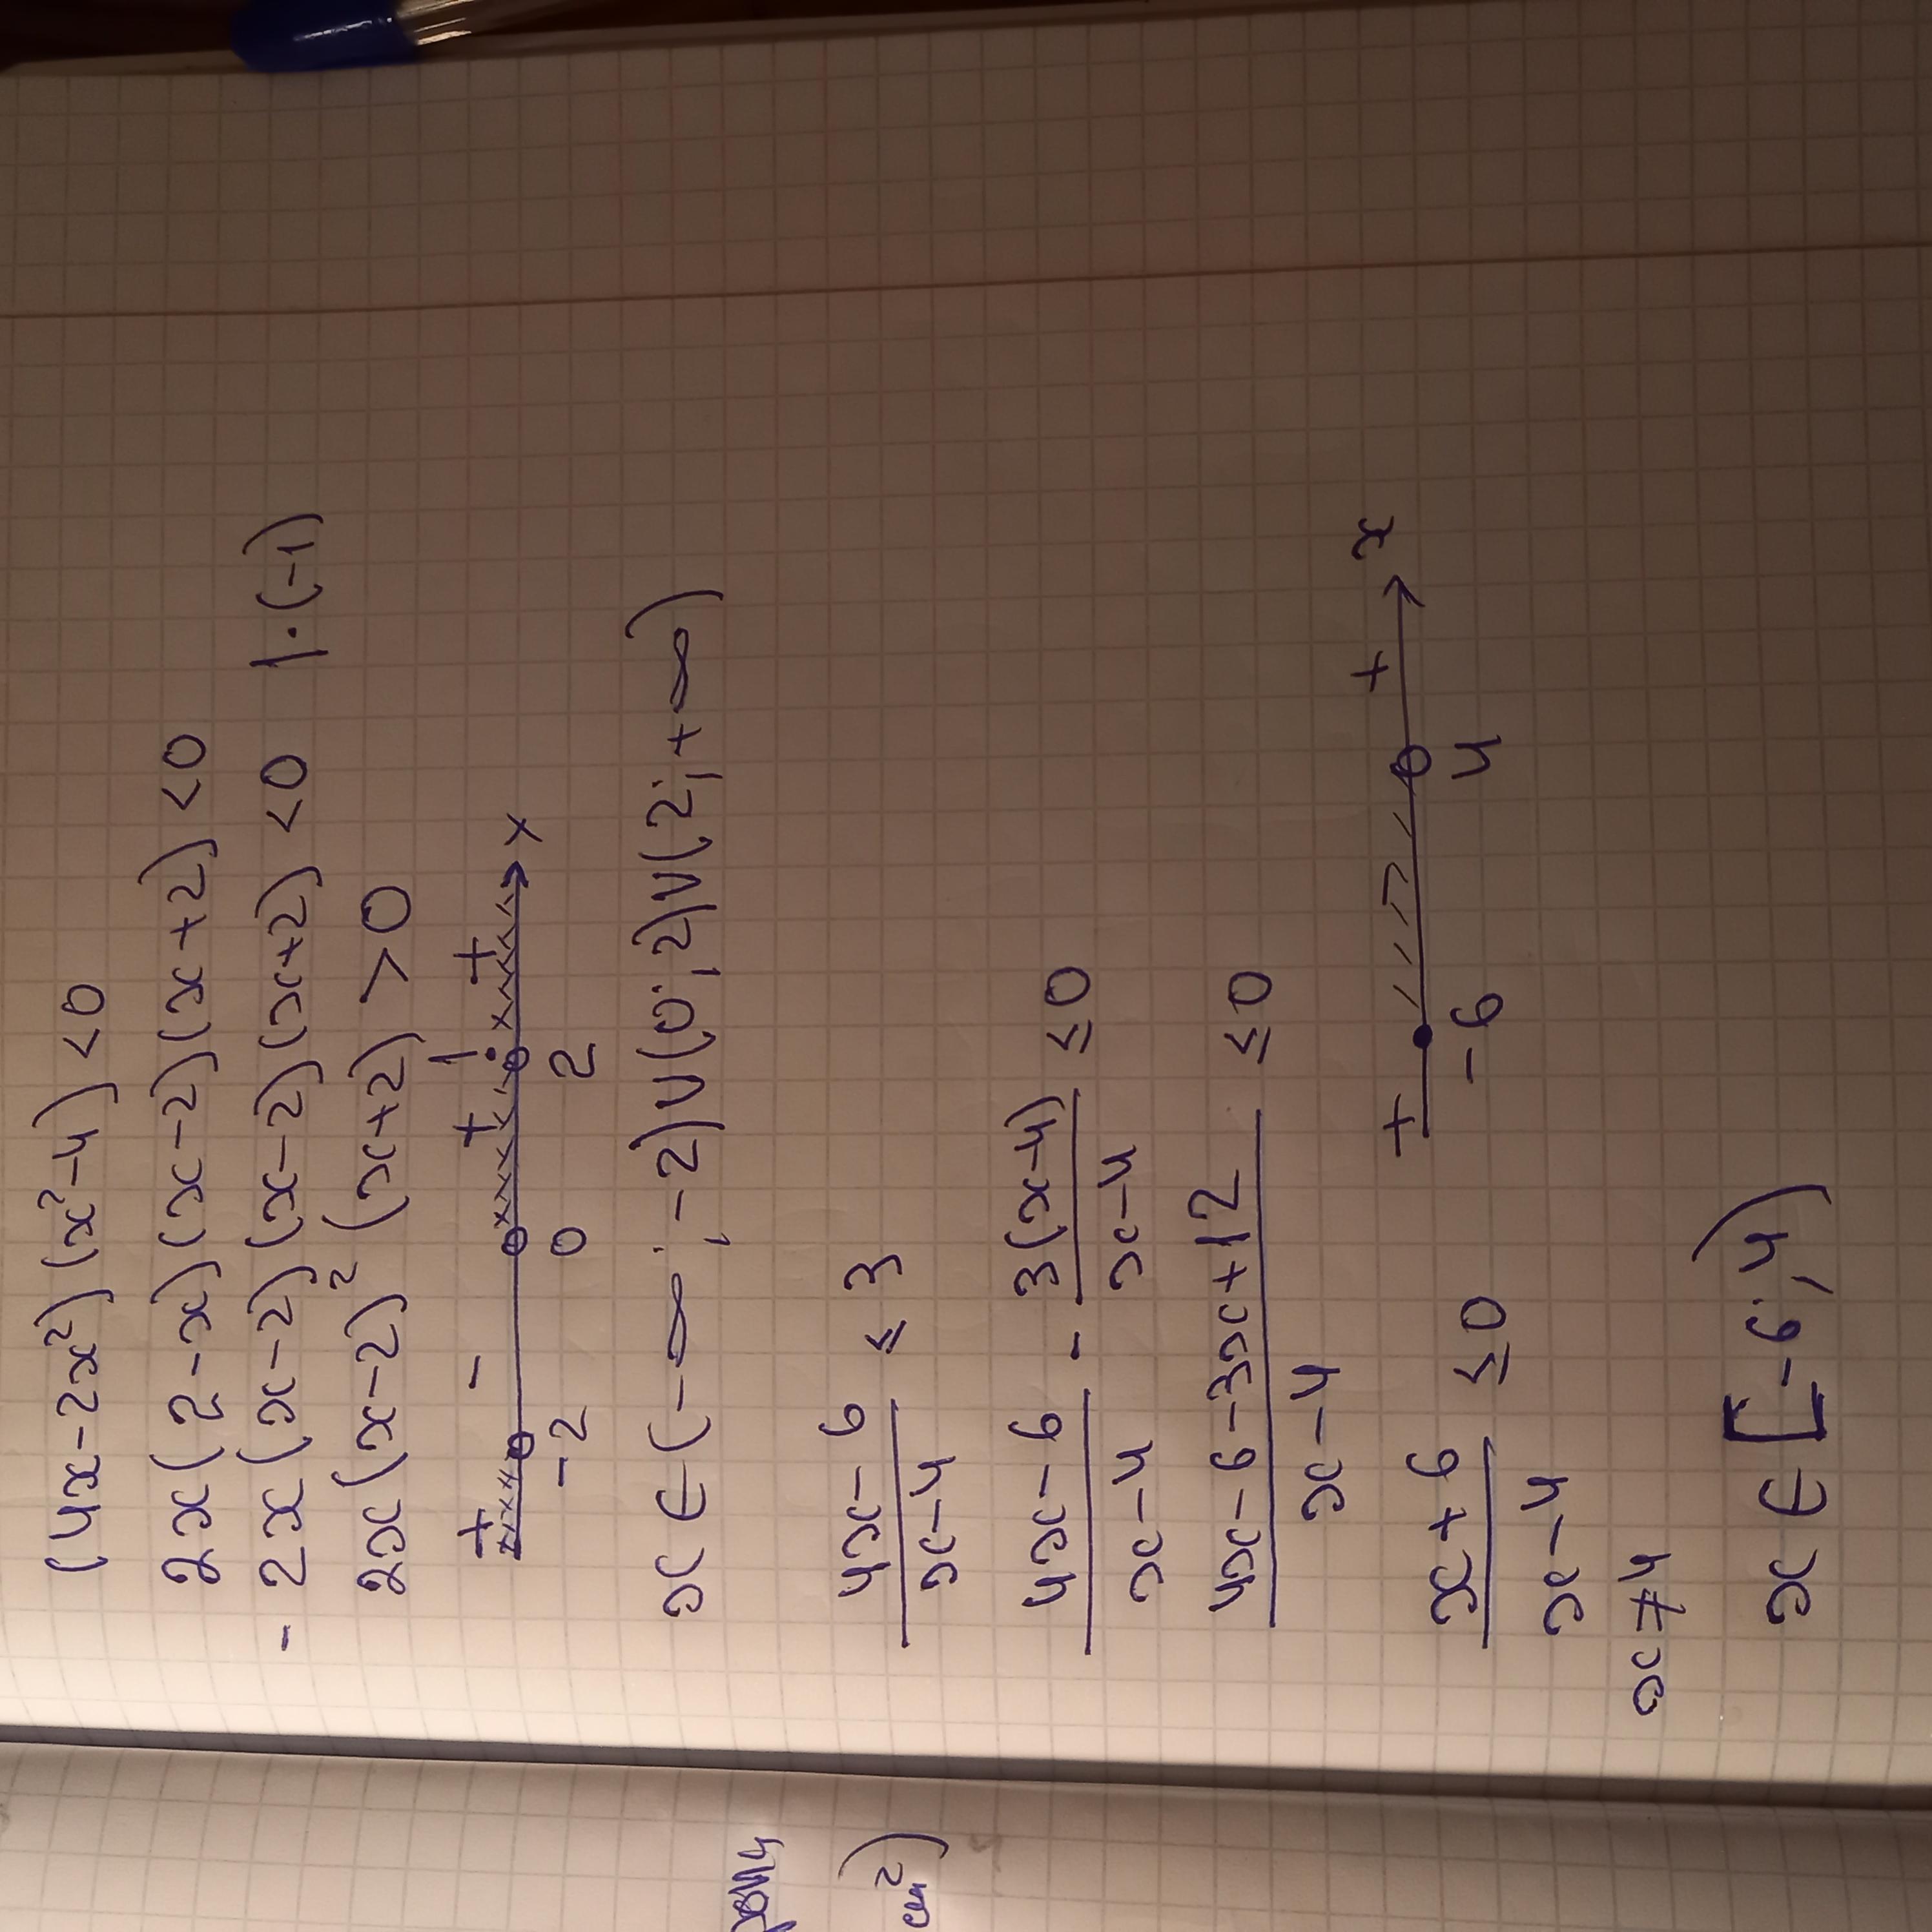 (4x-2x²)(x²-4)<0
2x(2-x)(x-2)(x+2)<0
-2x(x-2)(x-2)(x+2)<0 |·(-1)
2x(x-2)²(x+2)>0
+ - + 1 +
-2 0 2 x
x∈(-∞;-2)∪(0;2)∪(2;+∞)
4x-6/x-4 ≤ 3
4x-6/x-4 - 3(x-4)/x-4 ≤0
4x-6-3x+12/x-4 ≤0
x+6/x-4 ≤0
+ + x
-6 4
x≠4
x∈[-6;4)
см²)